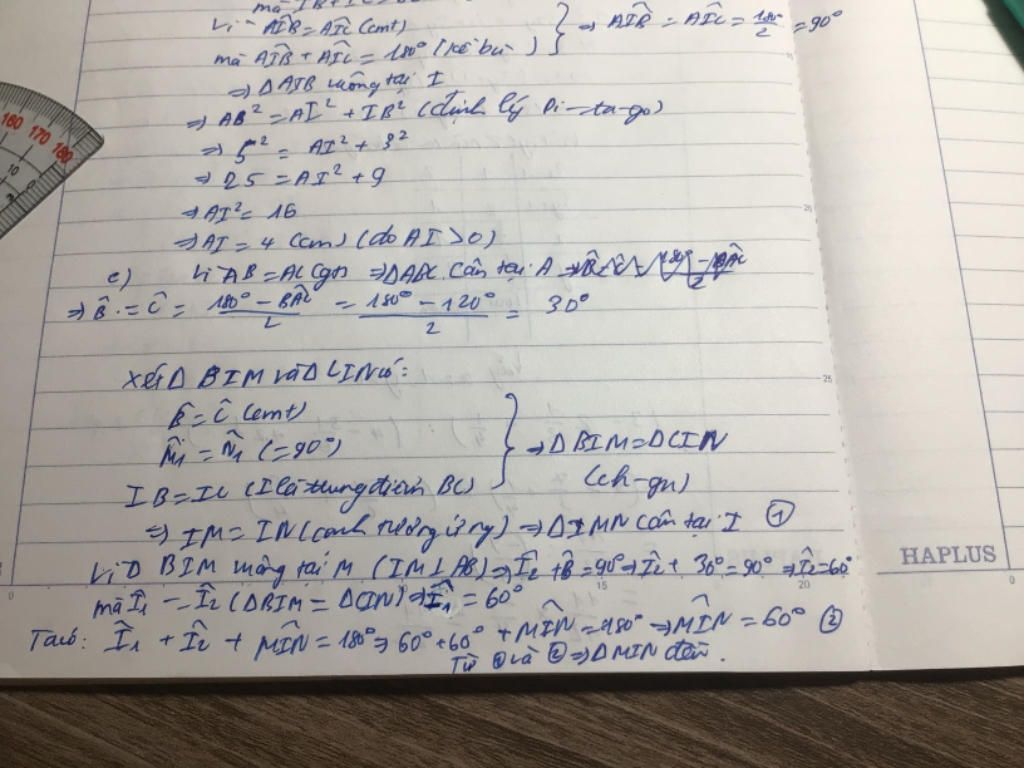 Vì AIB̂ = AIĈ (cmt)
mà AIB̂ + AIĈ = 180° (kề bù) } ⇒ AIB̂ = AIĈ = 180°/2 = 90°
⇒ ΔAIB vuông tại I
⇒ AB² = AI² + IB² (định lý Pi-ta-go)
⇒ 5² = AI² + 3²
⇒ 25 = AI² + 9
⇒ AI² = 16
⇒ AI = 4 (cm) (do AI > 0)
c) Vì AB = AC (gt) ⇒ ΔABC cân tại A
⇒ B̂ = Ĉ = (180° - BAĈ)/2 = (180° - 120°)/2 = 30°
Xét Δ BIM và Δ CIN có:
B̂ = Ĉ (cmt)
M̂₁ = N̂₁ (= 90°)
IB = IC (I là trung điểm BC) } ⇒ Δ BIM = Δ CIN
(ch-gn)
⇒ IM = IN (cạnh tương ứng) ⇒ ΔIMN cân tại I ①
Vì Δ BIM vuông tại M (IM ⊥ AB) ⇒ Î₂ + B̂ = 90° ⇒ Î₂ + 30° = 90° ⇒ Î₂ = 60°
mà Î₁ = Î₂ (ΔBIM = ΔCIN) ⇒ Î₁ = 60°
Ta có: Î₁ + Î₂ + MIN̂ = 180° ⇒ 60° + 60° + MIN̂ = 180° ⇒ MIN̂ = 60° ②
Từ ① và ② ⇒ ΔMIN đều.
HAPLUS
160 170 180
10
25
25
0
15
20
0